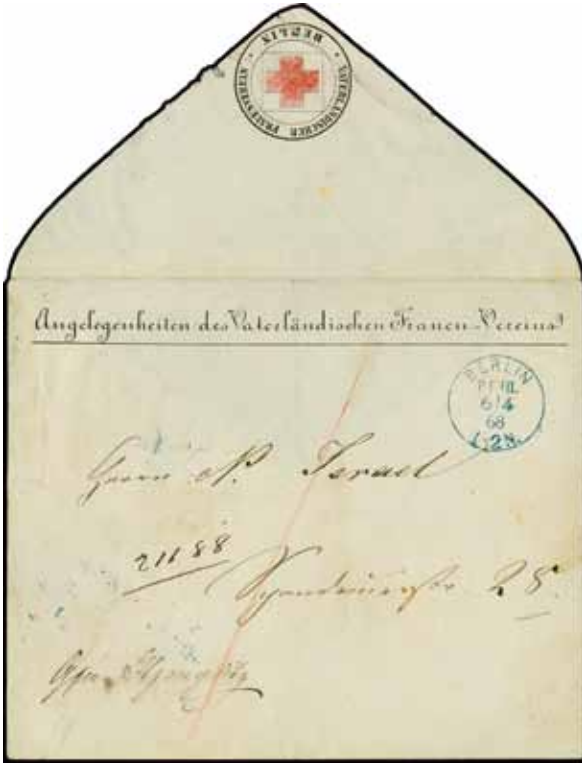 VATERLÄNDISCHER FRAUENVEREIN
* BERLIN *
Angelegenheiten des Vaterländischen Frauen-Vereins
BERLIN
P.E. III.
6/4
68
1-2N.
Herrn N. Israel
21188
Spandauerstr. 28.